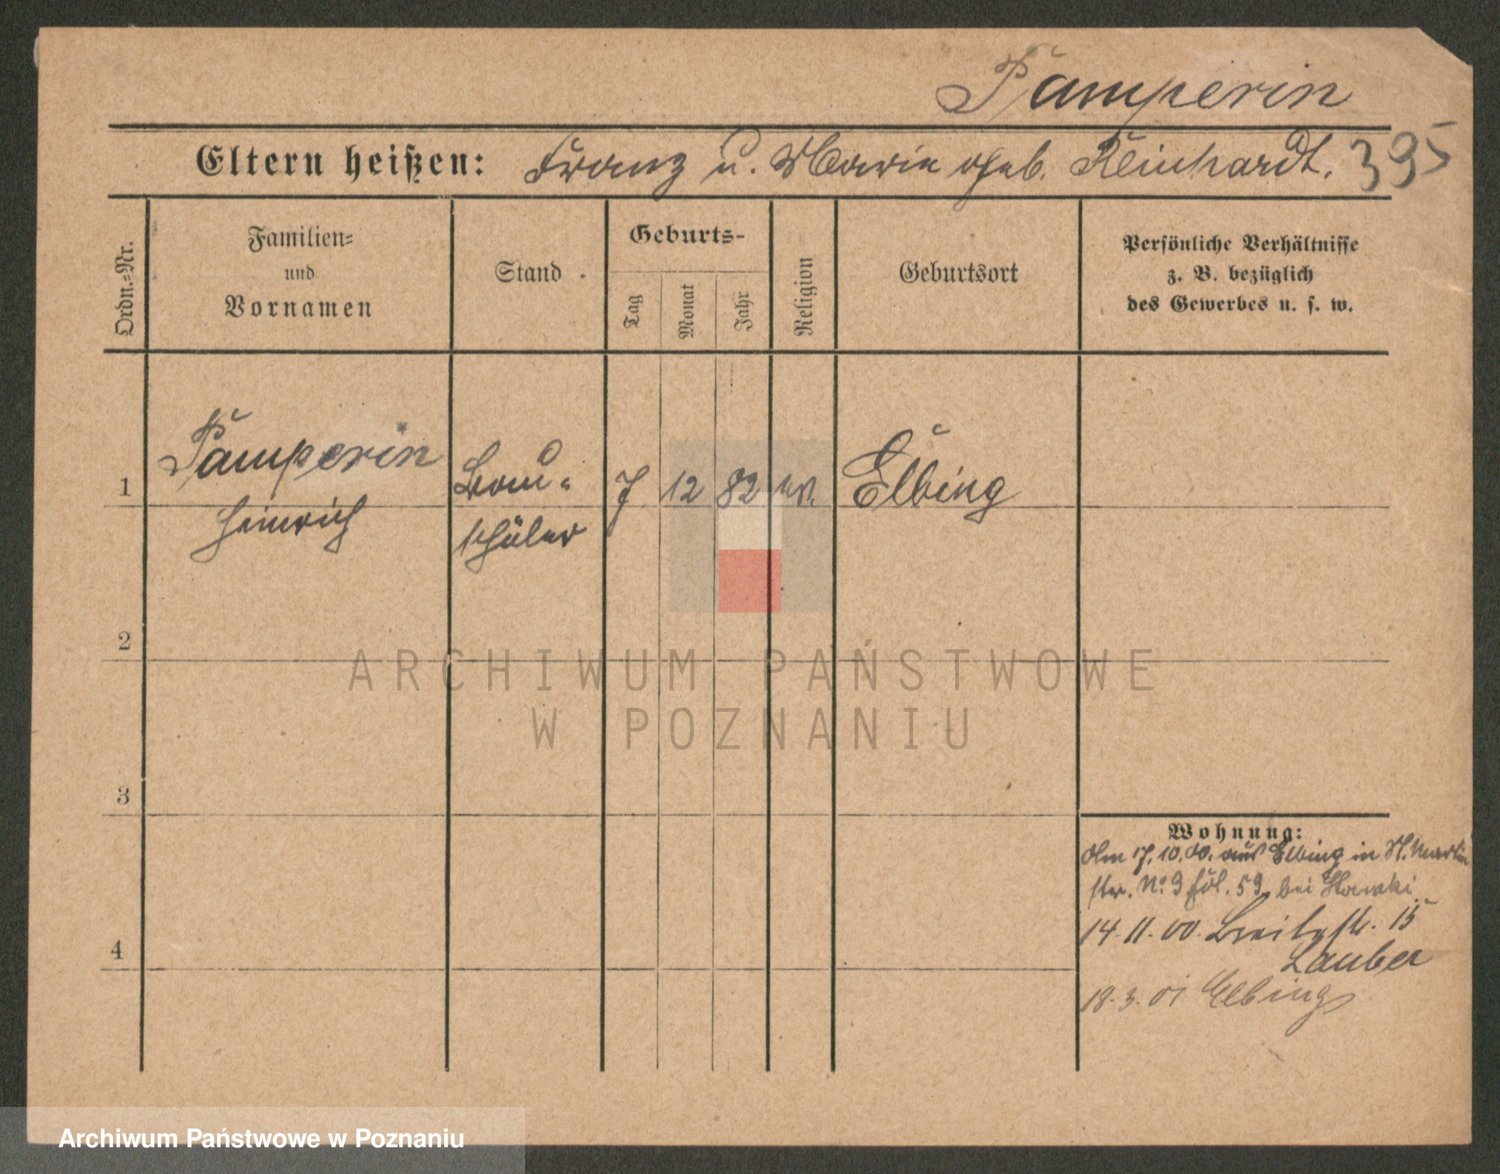 Pamperin
Eltern heißen: Franz u. Marie geb. Reinhardt. 395
Ordn.=Nr.
Familien=
und
Vornamen
Stand
Geburts-
Tag
Monat
Jahr
Religion
Geburtsort
Persönliche Verhältnisse
z. B. bezüglich
des Gewerbes u. s. w.
1
Pamperin
Heinrich
Bau-
schüler
7. 12 82 ev. Elbing
2
ARCHIWUM PAŃSTWOWE
W POZNANIU
3
Wohnung:
Am 17.10.00. aus Elbing in St. Martin
str. No 9 bei
14.11.00. Breitestr. 15
Lauber
18.3.01 Elbing
4
Archiwum Państwowe w Poznaniu